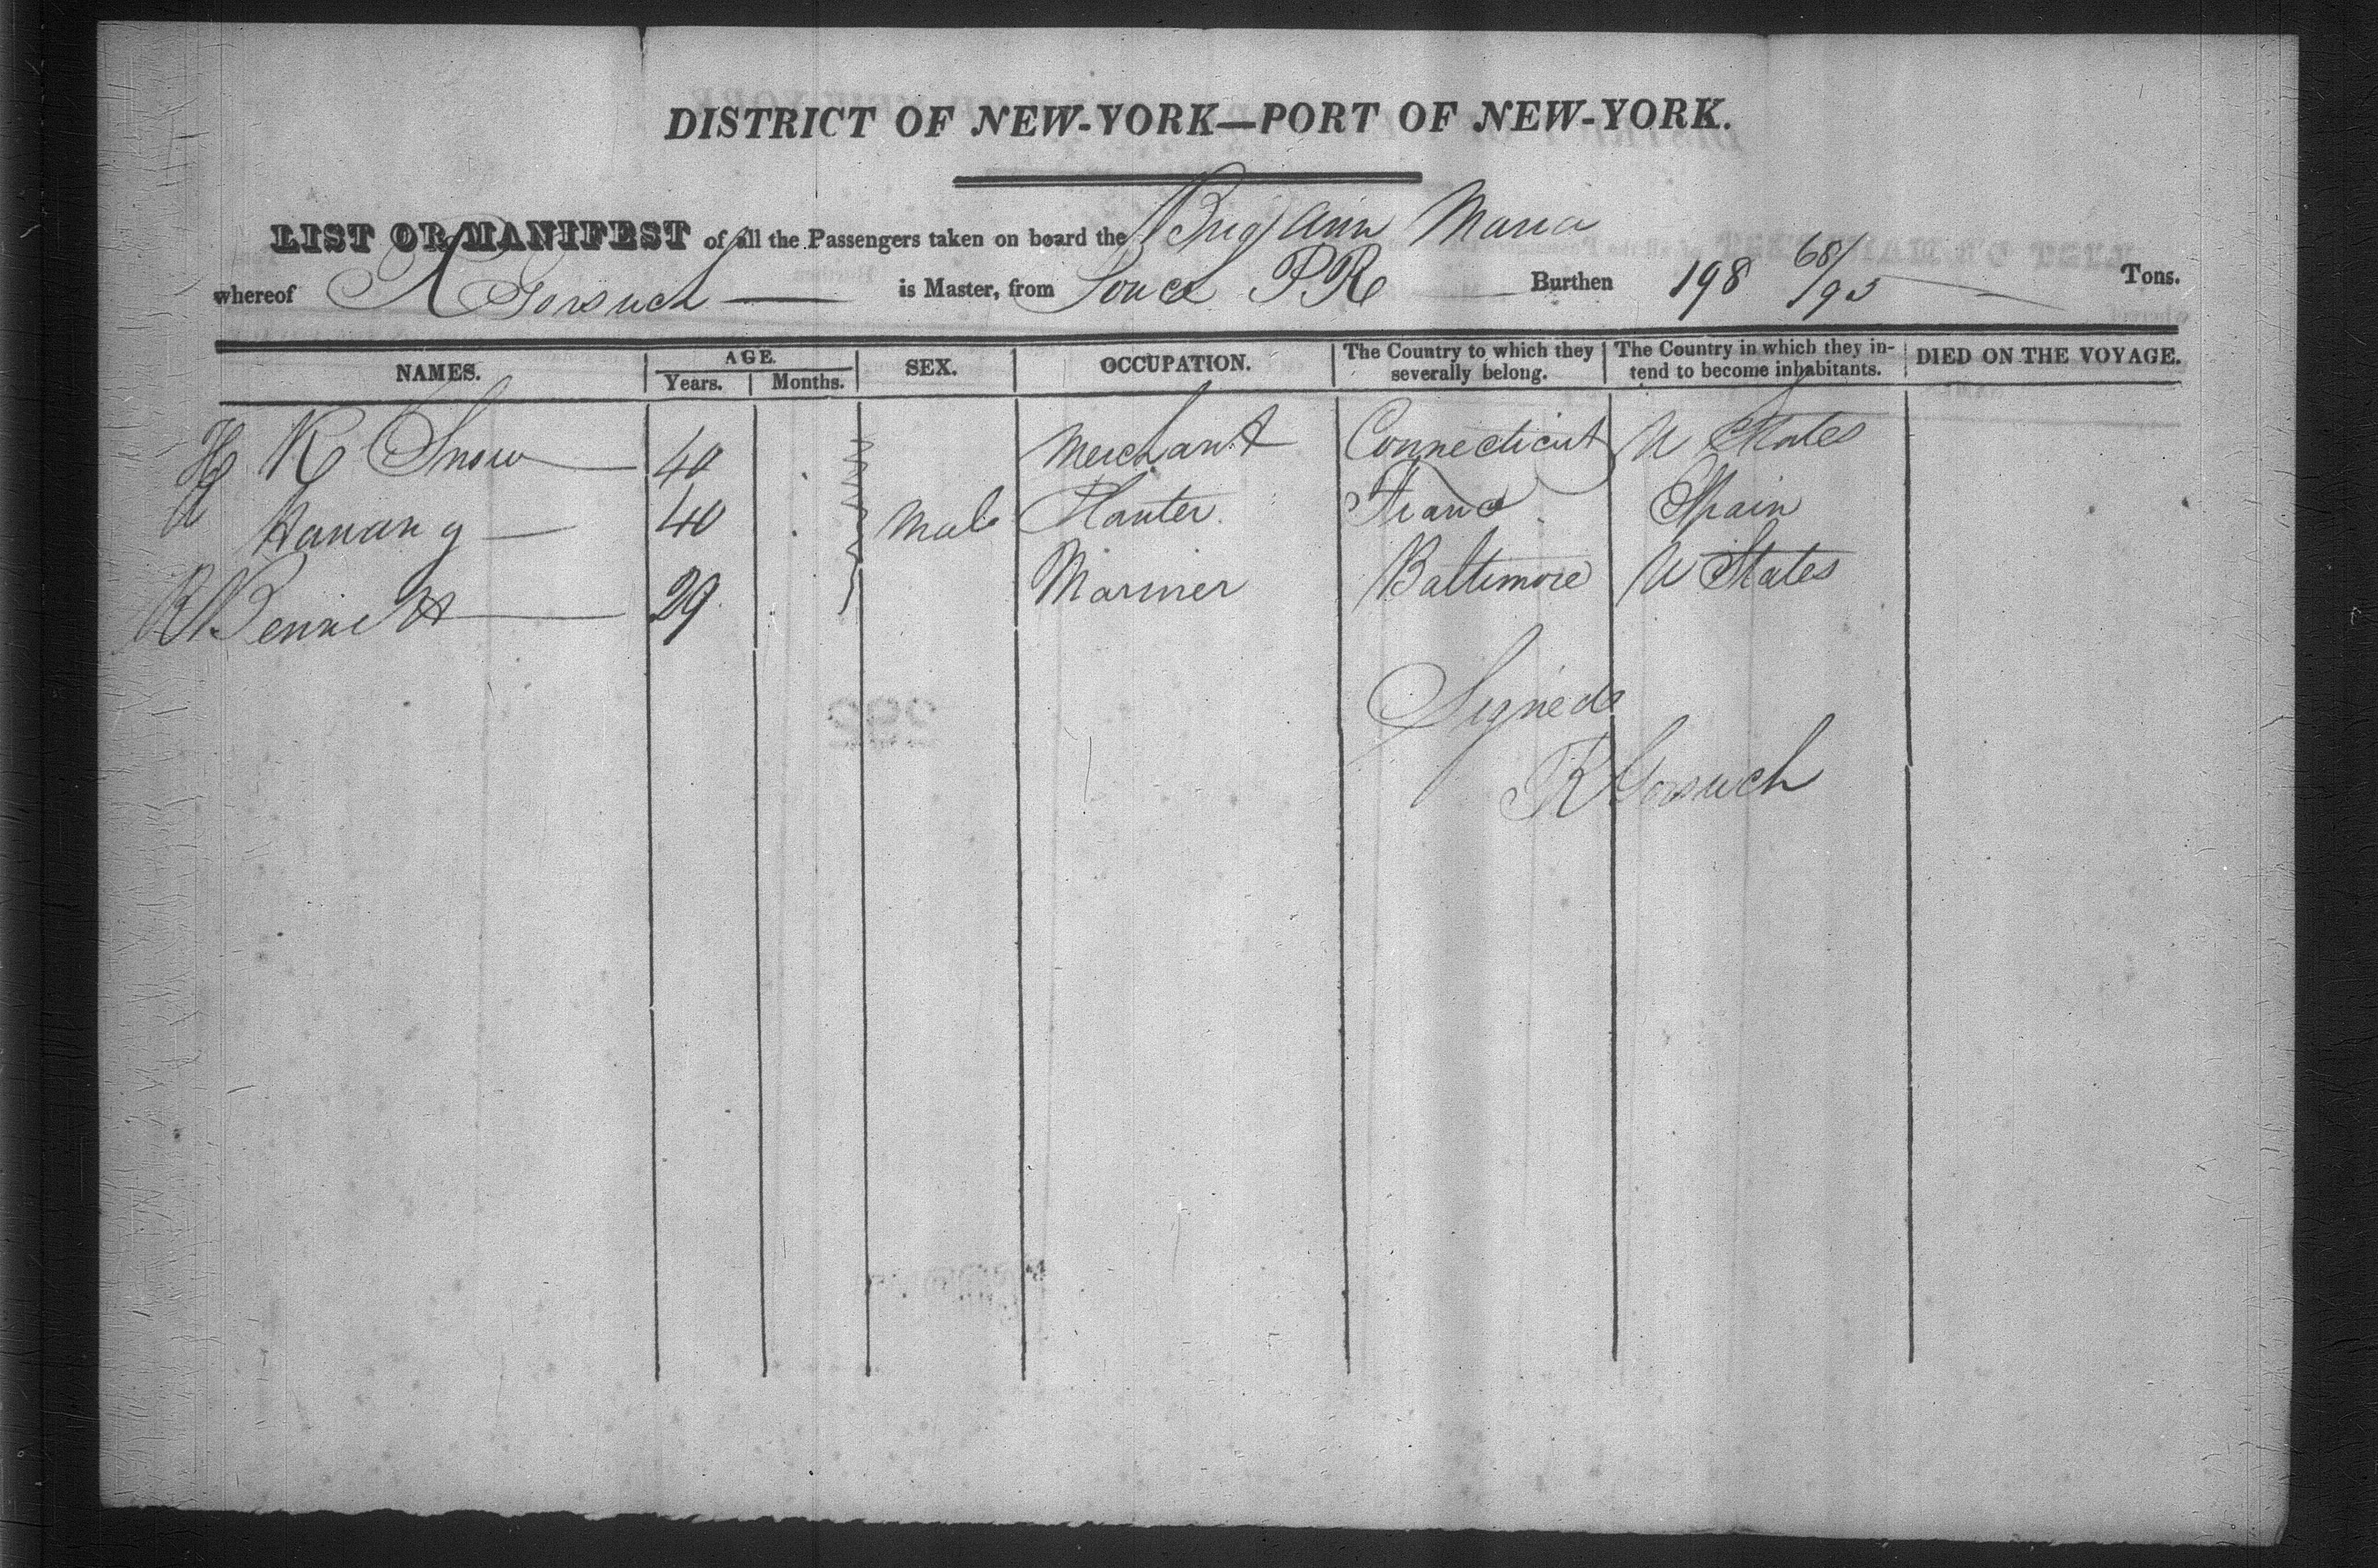 DISTRICT OF NEW-YORK—PORT OF NEW-YORK.
LIST OR MANIFEST of all the Passengers taken on board the Brig Ann Maria
whereof R Gorsuch is Master, from Ponce PR Burthen 198 68/95 Tons.
NAMES. AGE. SEX. OCCUPATION. The Country to which they severally belong. The Country in which they intend to become inhabitants. DIED ON THE VOYAGE.
Years. Months.
H R Snow 40 Merchant Connecticut U States
40 Male Planter France Spain
R Bennett 29 Mariner Baltimore U States
Signed
R Gorsuch